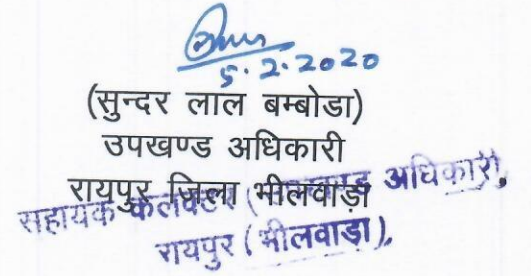 5.2.2020
(सुन्दर लाल बम्बोडा)
उपखण्ड अधिकारी
रायपुर जिला भीलवाड़ा
सहायक कलेक्टर ( अधिकारी,
रायपुर (भीलवाड़ा),